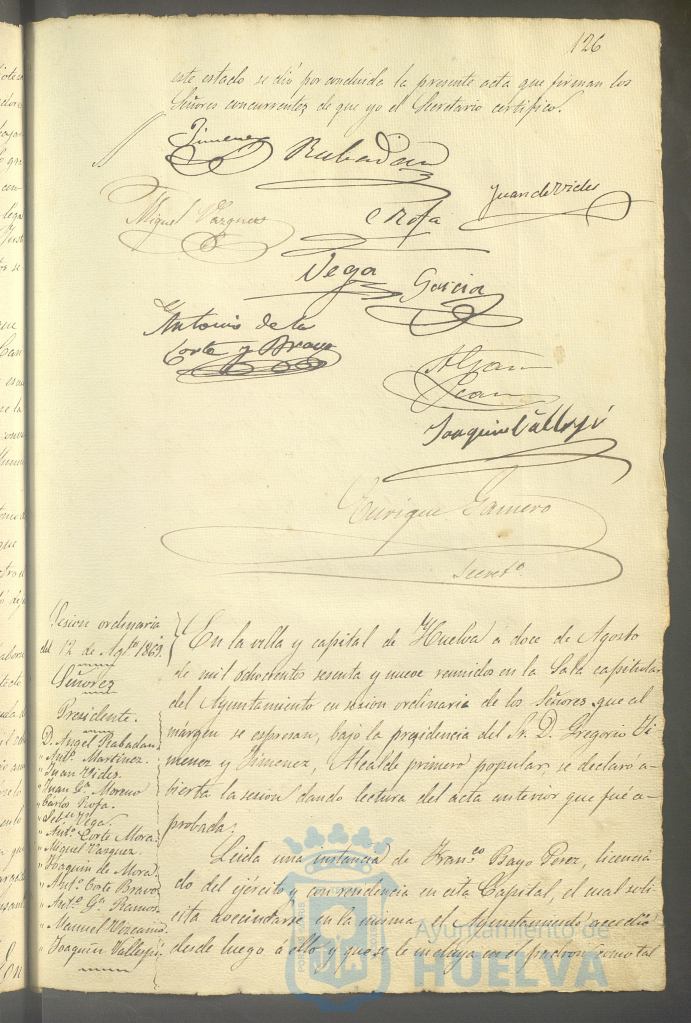 126
este estado se dió por concluida la presente acta que firman los
Señores concurrentes de que yo el Secretario certifico.
Jimenez
Rabadan
Juan de Vides
Miguel Vazquez
C Rofa
Vega
Garcia
Antonio de la
Corte y Bravo
Joaquin Vallejo
Enrique Gamero
Secret.o
Sesion ordinaria
del 12 de Ag.to 1869.
Señores
Presidente.
D. Angel Rabadan.
" Ant.o Martinez.
" Juan Vides.
" Juan G.a Moreno
" Carlos Rofa.
" Seb.n Vega.
" Ant.o Corte Mora.
" Miguel Vazquez.
" Joaquin de Mora.
" Ant.o Corte Bravo
" Ant.o G.a Ramos
" Manuel Vizcaino
" Joaquin Vallejo
En la villa y capital de Huelva a doce de Agosto
de mil odhocientos sesenta y nueve reunidos en la Sala capitular
del Ayuntamiento en sesion ordinaria de los Señores que al
márgen se espresan, bajo la presidencia del Sr. D. Gregorio Ji-
menez y Jimenez, Alcalde primero popular, se declaró a-
bierta la sesion dando lectura del acta anterior que fué a-
probada;
Leida una instancia de Fran.co Bayo Perez, licencia
do del ejército y con residencia en esta Capital, el cual soli
cita avecindarse en la misma, el Ayuntamiento accedió
desde luego á ello y que se le incluya en el padron como tal
Ayuntamiento de
HUELVA